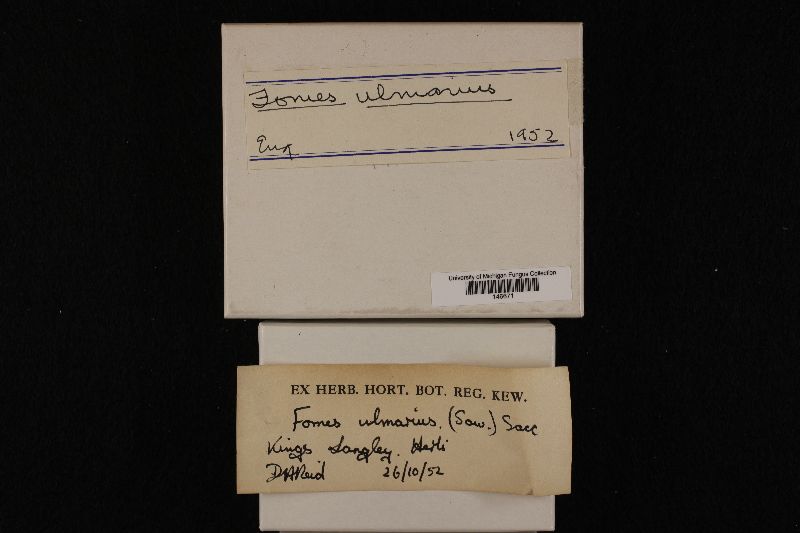 Fomes ulmarius
Eng 1952
University of Michigan Fungus Collection
146671
EX HERB. HORT. BOT. REG. KEW.
Fomes ulmarius. (Sow.) Sacc
Kings Langley. Herts
DAReid 26/10/52